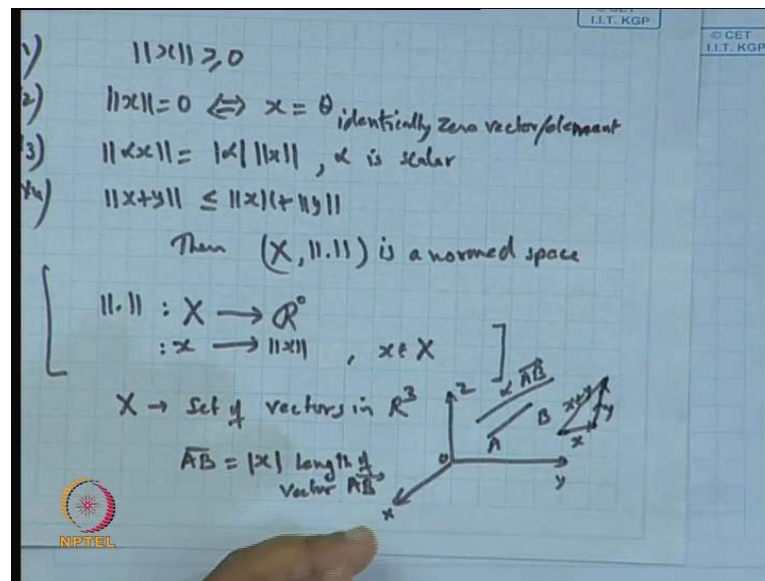 I.I.T. KGP
© CET
I.I.T. KGP
1) ||x|| ≥ 0
2) ||x|| = 0 ⇔ x = θ identically zero vector/element
3) ||αx|| = |α| ||x|| , α is scalar
||x+y|| ≤ ||x|| + ||y||
Then (X, ||.||) is a normed space
||.|| : X → R
: x → ||x|| , x ∈ X
X → Set of vectors in R³
AB = |x| Length of vector AB
z
α AB
A
B
x+y
x
y
o
y
x
NPTEL